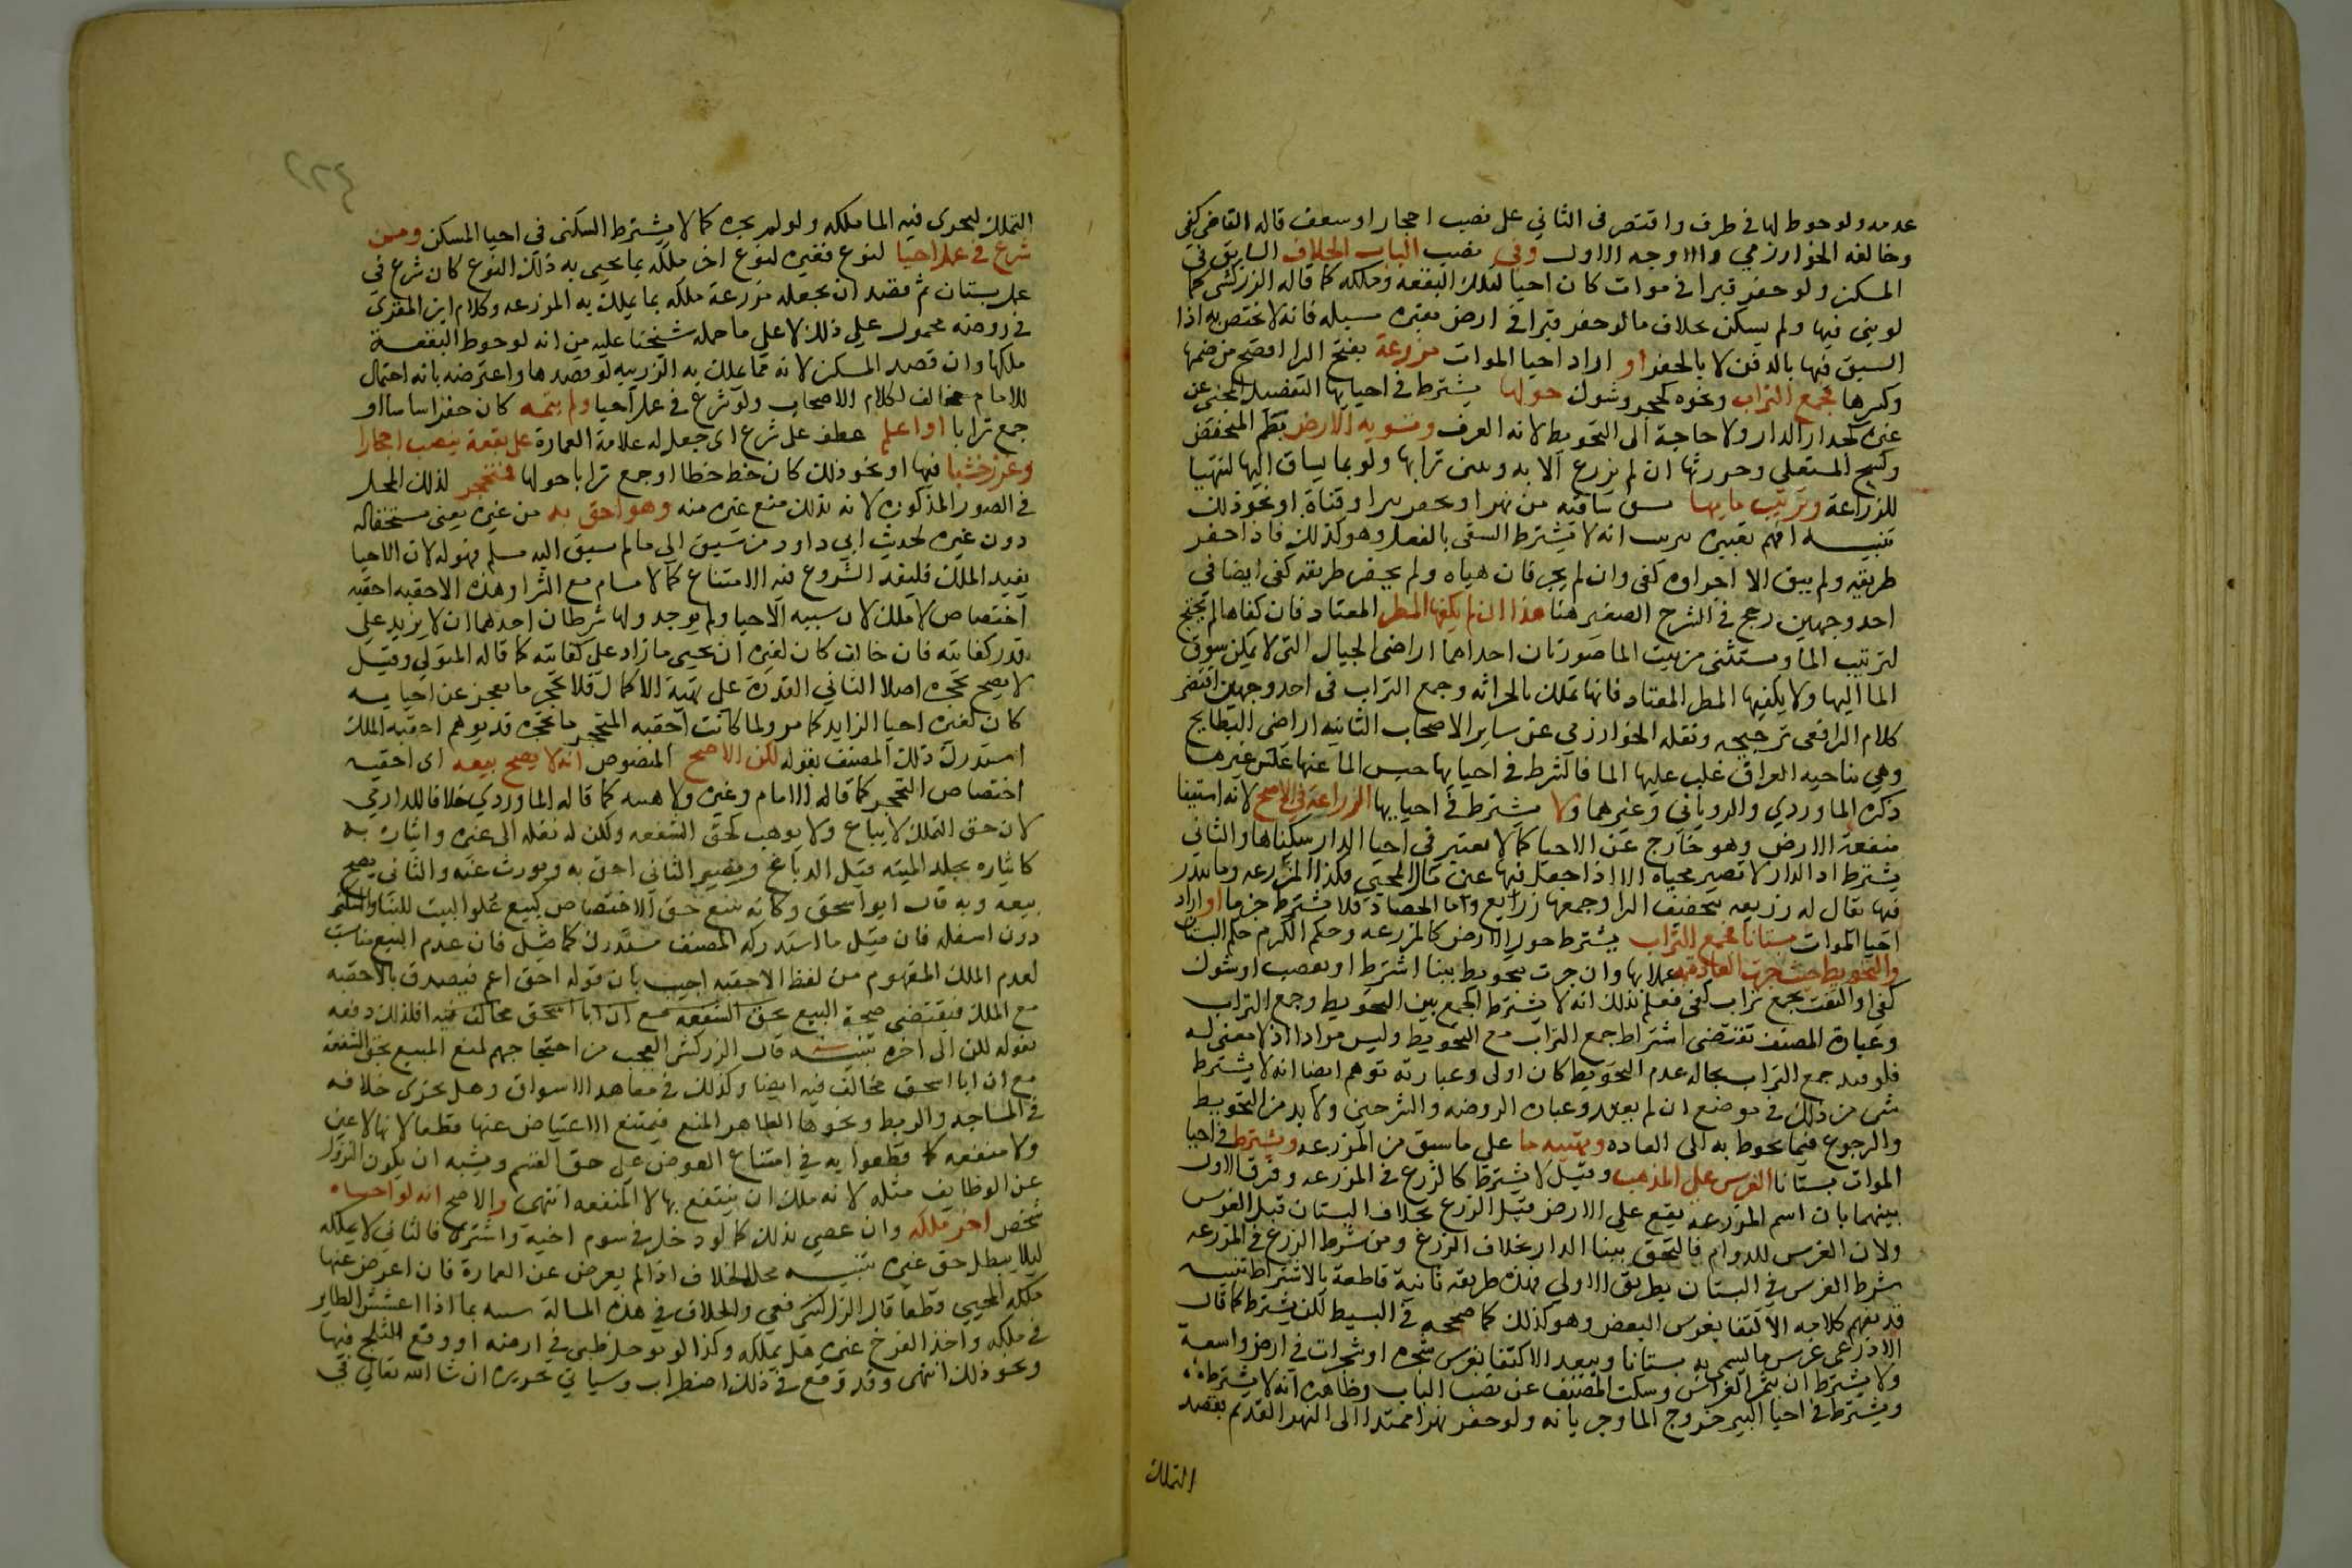 عدمه ولو حوط لها في طرف واقتصر في الثاني على نصب احجار او سعف قاله القاضي كفى
وخالفه الخوارزمي والاوجه الاول وفي نصب الباب الخلاف السابق في
المسكن ولو حفر قبرا في موات كان احيا لتلك البقعة وملكه كما قاله الزركشي كما
لو بنى فيها ولم يسكن بخلاف ما لو حفر قبرا في ارض مقبرة مسبله فانه لا يختص به اذا
السبق فيها بالدفن لا بالحفر او اراد احيا الموات مزرعة بفتح الرا افصح من ضمها
وكسرها فجمع التراب ونحوه كحجر وشوك حولها يشترط في احيايها التفصيل المحيى عن
غيره كجدار الدار ولا حاجة الى التحويط لانه العرف وتسوية الارض بطم المنخفض
وكسح المستعلي وحرثها ان لم تزرع الا به وبلين ترابها ولو بما يساق اليها لتتهيا
للزراعة وترتيب مايها بسوق ساقيه من نهر او بحفر بير او قناة او نحو ذلك
تنبيه افهم تعبيره بترتيب انه لا يشترط السقي بالفعل وهو كذلك فاذا حفر
طريقه ولم يبق الا اجراوه كفى وان لم يجر فان هياه ولم يحفر طريقه كفى ايضا في
احد وجهين رجح في الشرح الصغير هنا هذا ان لم يكفها المطر المعتاد فان كفاها لم يحتج
لترتيب الما ويستثنى من ترتيب الما صورتان احداهما اراضي الجبال التي لا يمكن سوق
الما اليها ولا يكفيها المطر المعتاد فانها تملك بالحراثه وجمع التراب في احد وجهين اقتضى
كلام الرافعي ترجيحه ونقله الخوارزمي عن ساير الاصحاب الثانيه اراضي البطايح
وهي بناحيه العراق غلب عليها الما فالشرط في احيايها حبس الما عنها عكس غيرها
ذكره الماوردي والروياني وغيرهما ولا يشترط في احيايها الزراعة في الاصح لانه استيفا
منفعة الارض وهو خارج عن الاحيا كما لا يعتبر في احيا الدار سكناها والثاني
يشترط اذ الدار لا تصير محياه الا اذا جعل فيها عين مال المحيي فكذا المزرعه وما يبذر
فيها يقال له زريعه بتخفيف الرا وجمعها زرايع واما الحصاد فلا يشترط جزما او اراد
احيا الموات بستانا فجمع التراب يشترط حول الارض كالمزرعه وحكم الكرم حكم البستان
والتحويط حيث جرت العادة به عملا بها وان جرت بتحويط ببنا اشترط او بقصب او شوك
كفى او اكتفت بجمع تراب كفى فعلم بذلك انه لا يشترط الجمع بين التحويط وجمع التراب
وعبارة المصنف تقتضي اشتراط جمع التراب مع التحويط وليس مرادا اذ لا معنى له
فلو قيد جمع التراب بحاله عدم التحويط كان اولى وعبارته توهم ايضا انه لا يشترط
شي من ذلك في موضع ان لم يعتد وعبارة الروضه والشرحين ولا بد من التحويط
والرجوع فيما يحوط به الى العاده وتهيئه ما على ما سبق من المزرعه ويشترط في احيا
الموات بستانا الغرس على المذهب وقيل لا يشترط كالزرع في المزرعه وفرق الاول
بينهما بان اسم المزرعه يقع على الارض قبل الزرع بخلاف البستان قبل الغرس
ولان الغرس للدوام فالتحق ببنا الدار بخلاف الزرع ومن شرط الزرع في المزرعه
شرط الغرس في البستان بطريق الاولى فهذه طريقه ثانية قاطعة بالاشتراط تنبيه
قد يفهم كلامه الاكتفا بغرس البعض وهو كذلك كما صححه في البسيط لكن يشترط كما قال
الاذرعي غرس ما يسمى به بستانا ويبعد الاكتفا بغرس شجره او شجرات في ارض واسعة
ولا يشترط ان يثمر الغراس وسكت المصنف عن نصب الباب وظاهره انه لا يشترط
ويشترط في احيا البير خروج الما وجريانه ولو حفر نهرا ممتدا الى النهر القديم بقصد
التملك
التملك ليجرى فيه الما ملكه ولو لم يجره كما لا يشترط السكنى في احيا المسكن ومن
شرع في عمل احيا لنوع فغيره لنوع اخر ملكه بما يحيى به ذلك النوع كان شرع في
عمل بستان ثم قصد ان يجعله مزرعة ملكه بما يملك به المزرعه وكلام ابن المقري
في روضه محمول على ذلك لا على ما حمله شيخنا عليه من انه لو حوط البقعة
ملكها وان قصد المسكن لانه مما يملك به الزريبه لو قصدها واعترضه بانه احتمال
للامام مخالف لكلام الاصحاب ولو شرع في عمل احيا ولم يتمه كان حفر اساسا او
جمع ترابا او اعلم عطف على شرع اي جعل له علامة العمارة على بقعة بنصب احجار
وغرز خشبا فيها او نحو ذلك كان خط خطا او جمع ترابا حولها فمتحجر لذلك المحل
في الصور المذكوره لانه بذلك منع غيره منه وهو احق به من غيره يعني مستحقاله
دون غيره لحديث ابي داود من سبق الى ما لم يسبق اليه مسلم فهو له لان الاحيا
يفيد الملك فليفد الشروع فيه الامتناع كالاستيام مع الشرا وهذه الاحقيه احقيه
اختصاص لا ملك لان سببه الاحيا ولم يوجد ولها شرطان احدهما ان لا يزيد على
قدر كفايته فان خالف كان لغيره ان يحيى ما زاد على كفايته كما قاله المتولي وقيل
لا يصح تحجره اصلا الثاني القدرة على تهيئة الاكمال فلا تحجر ما يعجز عن احيايه
كان لغيره احيا الزايد كما مر ولما كانت احقيه المتحجر ما تحجره قد يوهم احقيه الملك
استدرك ذلك المصنف بقوله لكن الاصح المنصوص انه لا يصح بيعه اي احقيه
اختصاص التحجر كما قاله الامام وغيره ولا هبته كما قاله الماوردي خلافا للدارمي
لان حق التملك لا يباع ولا يوهب كحق الشفعه ولكن له نقله الى غيره وايثاره به
كايثاره بجلد الميته قبل الدباغ ويصير الثاني احق به ويورث عنه والثاني يصح
بيعه وبه قال ابو اسحق وكانه يبيع حق الاختصاص كبيع علو البيت للبنا والسكنى
دون اسفله فان قيل ما استدركه المصنف مستدرك كما قيل فان عدم البيع مناسب
لعدم الملك المفهوم من لفظ الاحقيه اجيب بان قوله احق اعم فيصدق بالاحقيه
مع الملك فيقتضي صحة البيع بحق الشفعه مع ان ابا اسحق مخالف فيه فلذلك دفعه
بقوله لكن الى اخره تنبيه قال الزركشي العجب من احتجاجهم لمنع المبيع بحق الشفعة
مع ان ابا اسحق مخالف فيه ايضا وكذلك في مقاعد الاسواق وهل يجرى خلافه
في المساجد والربط ونحوها الظاهر المنع فيمتنع الاعتياض عنها قطعا لانها لا عين
ولا منفعه كما قطعوا به في امتناع العوض على حق القسم ويشبه ان يكون النزول
عن الوظايف مثله لانه ملك ان ينتفع بها لا المنفعه انتهى والاصح انه لو احياه
شخص اخر ملكه وان عصى بذلك كما لو دخل في سوم اخيه واشترى فالثاني لا يملكه
ليلا يبطل حق غيره تنبيه محل الخلاف اذا لم يعرض عن العمارة فان اعرض عنها
ملكه المحيي قطعا قال الزركشي والخلاف في هذه المسالة شبيه بما اذا اعشش الطاير
في ملكه واخذ الفرخ غيره هل يملكه وكذا لو توحل ظبي في ارضه او وقع الثلج فيها
ونحو ذلك انتهى وقد وقع في ذلك اضطراب وسياتي تحريره ان شا الله تعالى في